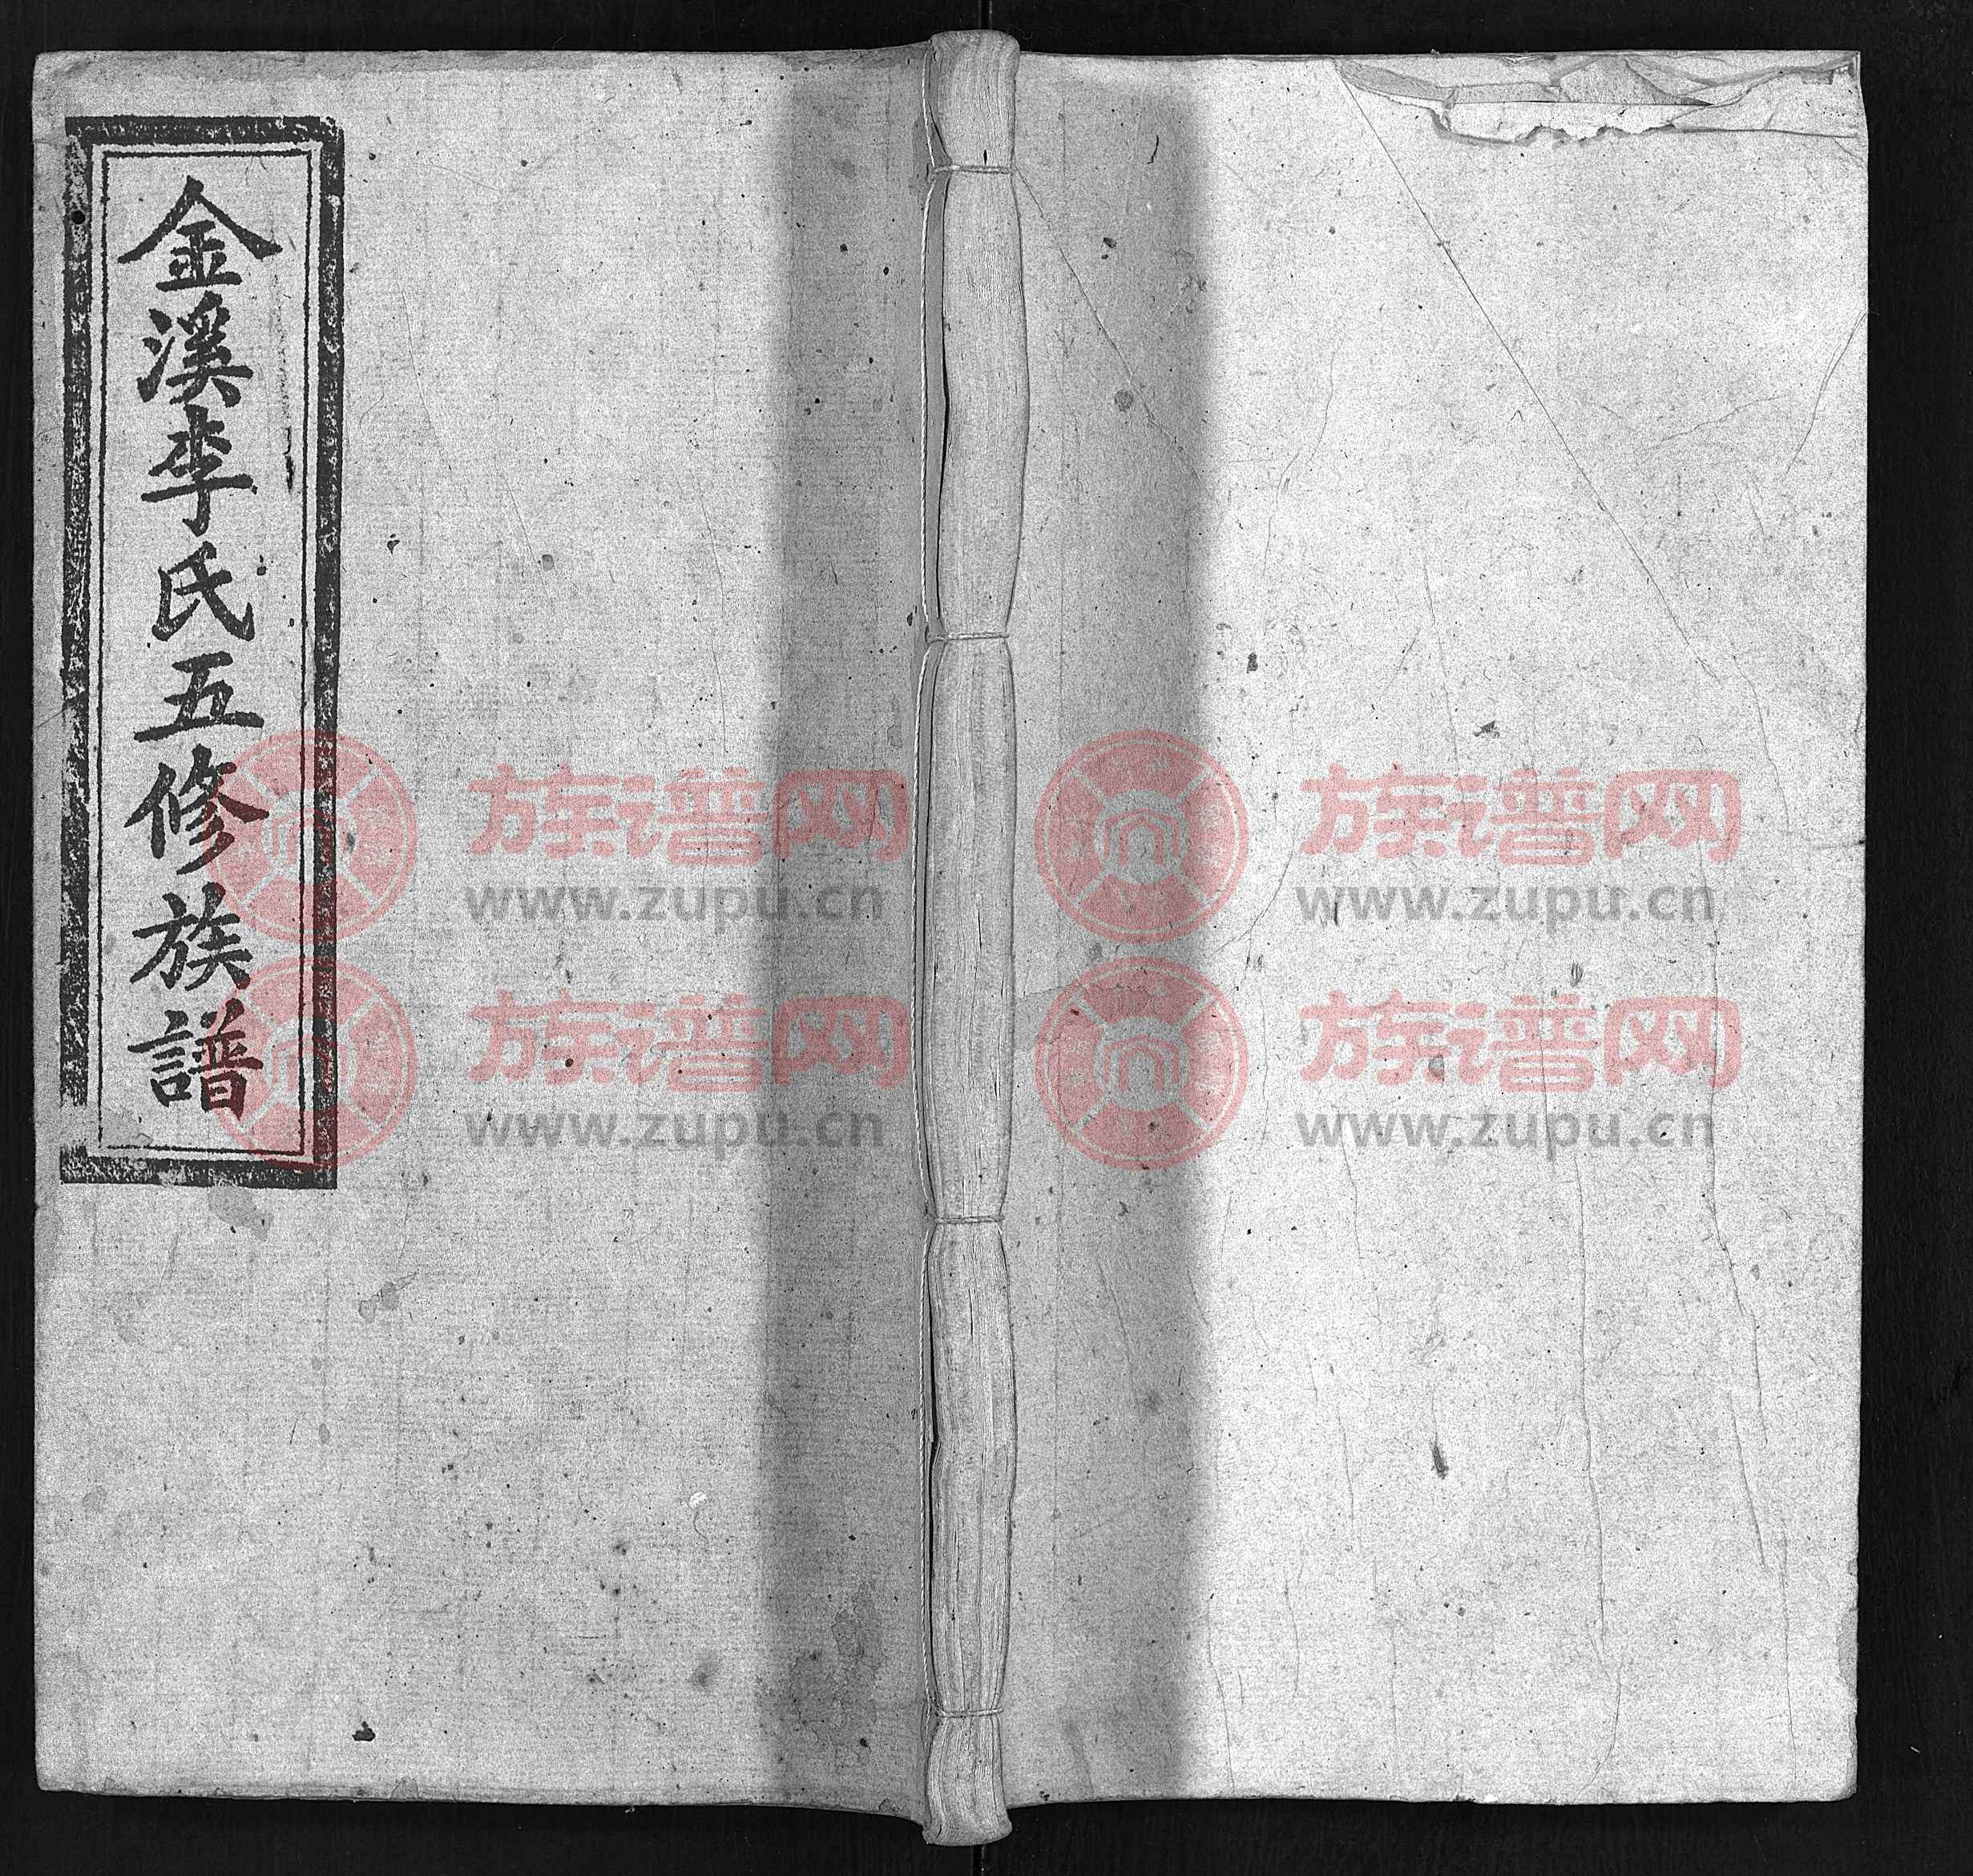 金溪李氏五修族譜
族谱网 族谱网
www.zupu.cn www.zupu.cn
族谱网 族谱网
www.zupu.cn www.zupu.cn